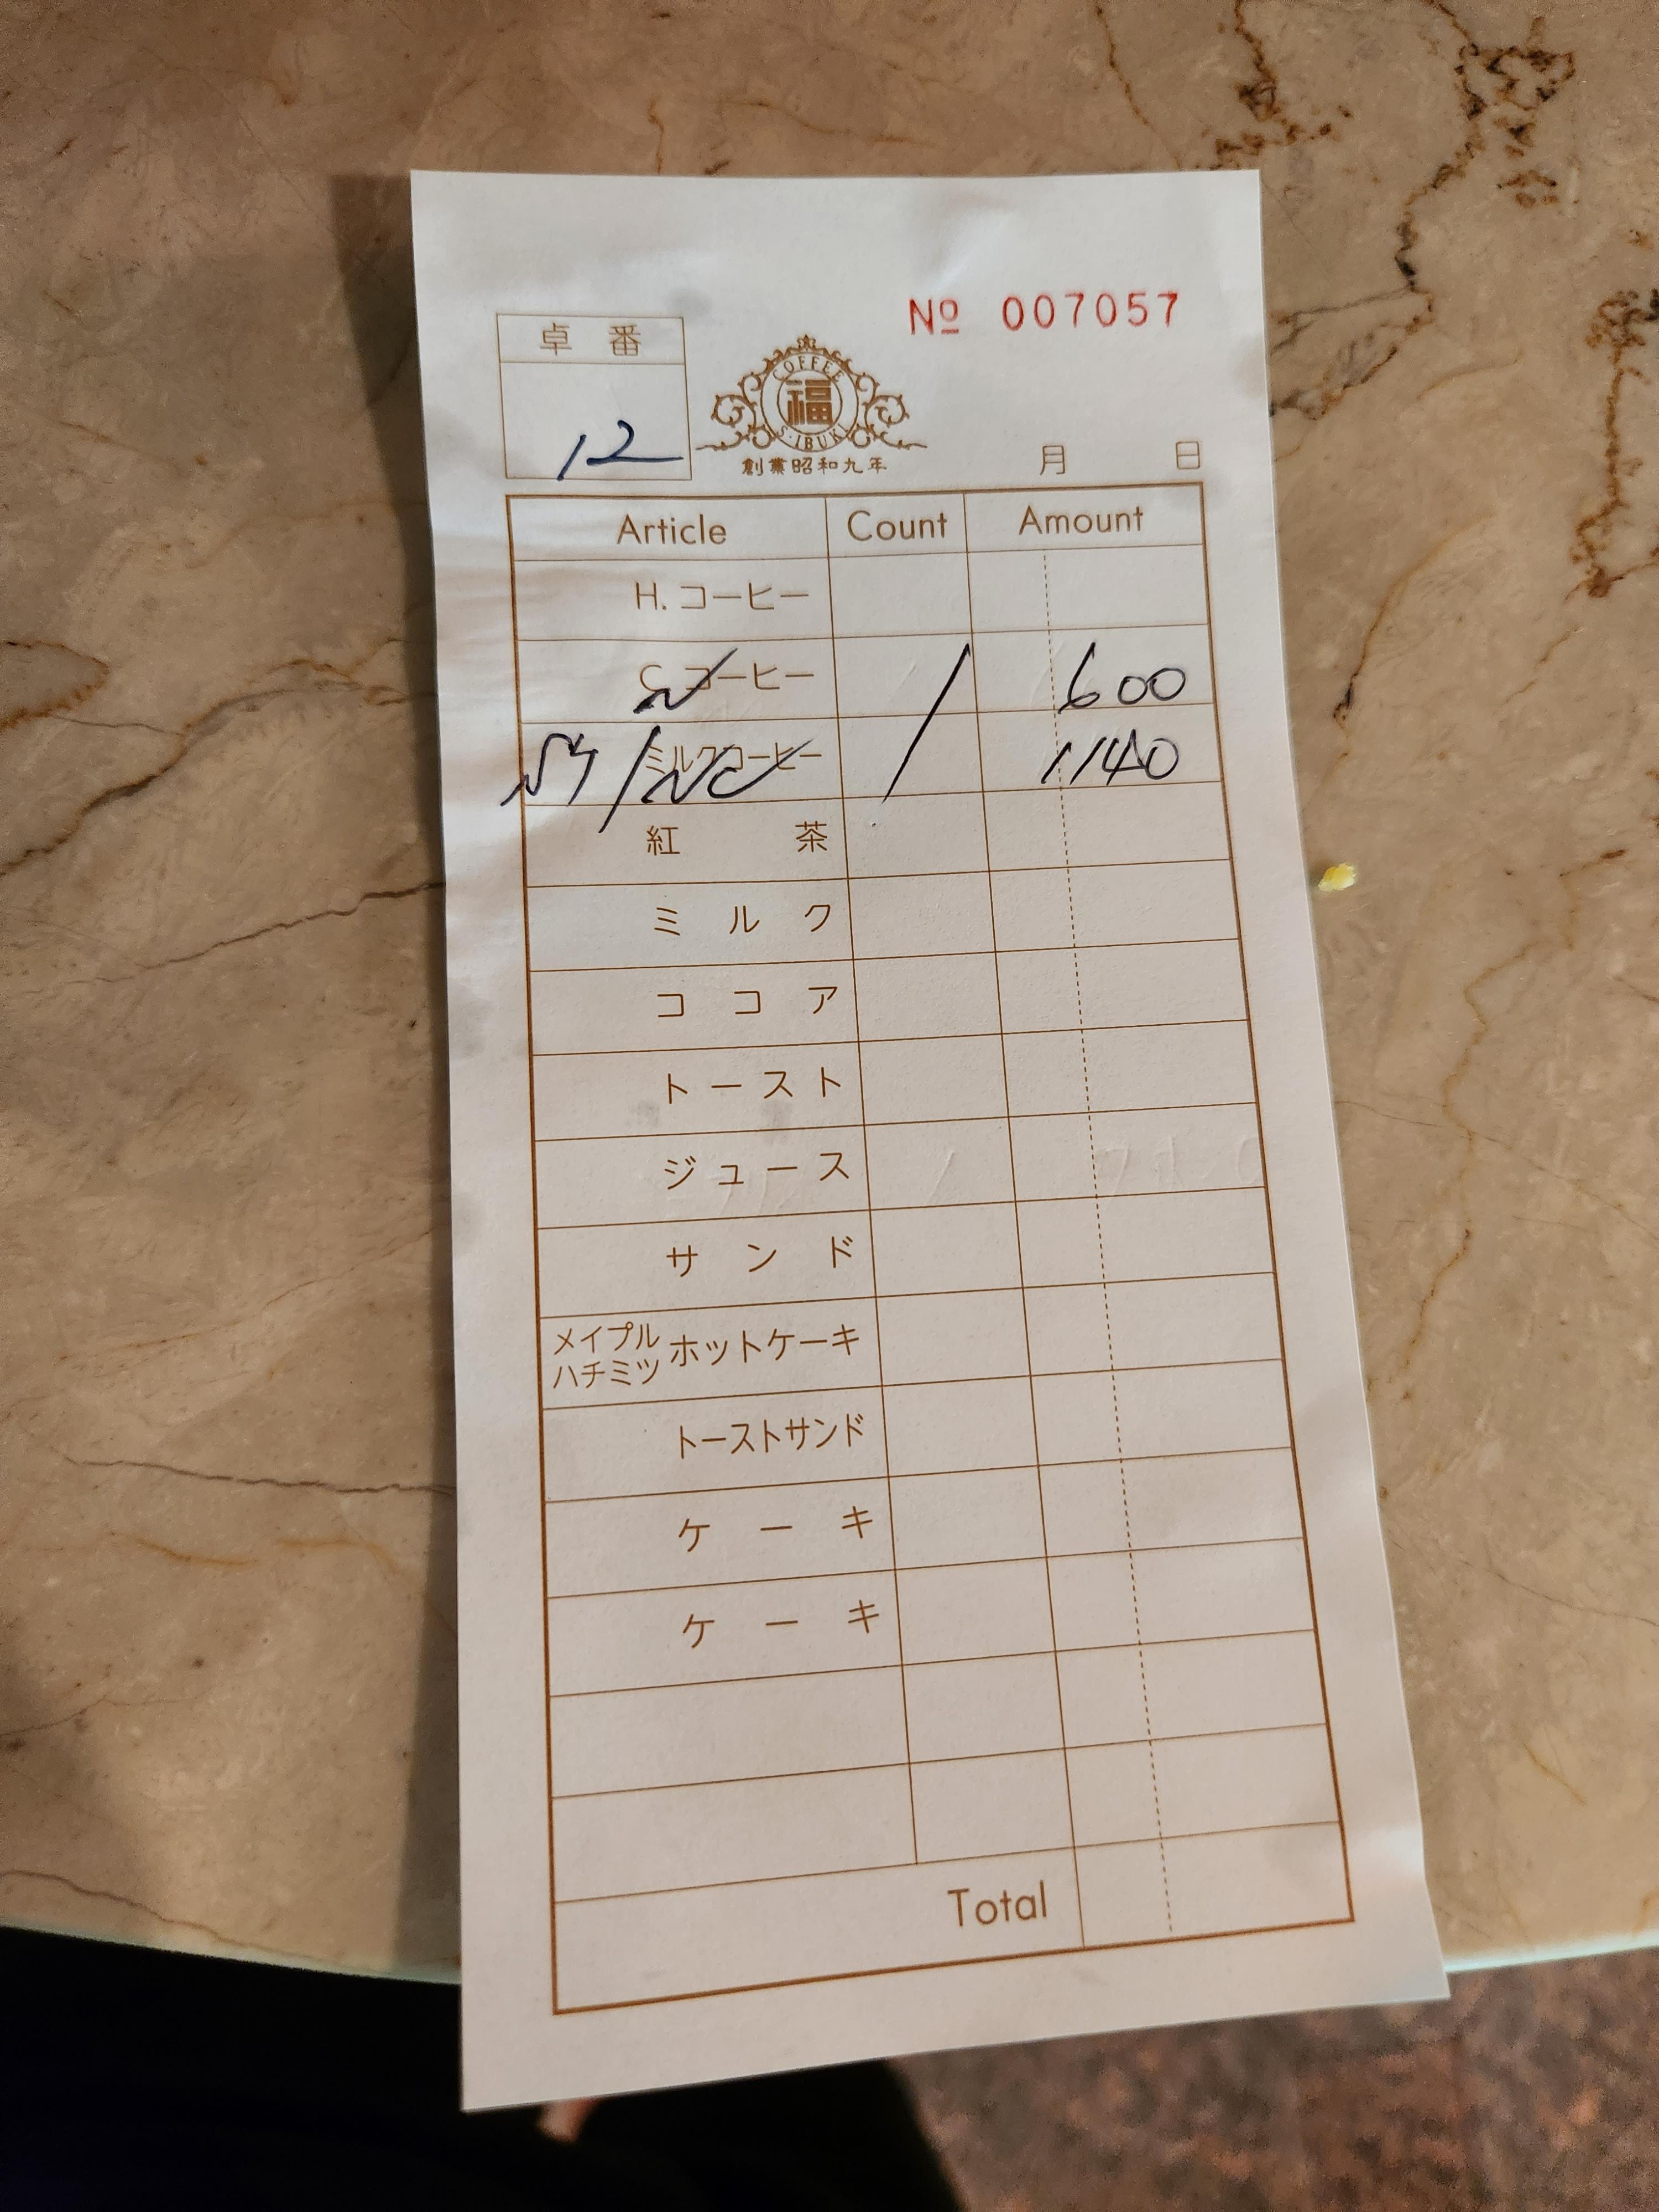 No 007057
卓番
12
COFFEE
福
S·IBUKI
創業昭和九年
月 日
Article Count Amount
H.コーヒー
C.コーヒー 600
ミルクコーヒー 1140
紅茶
ミルク
ココア
トースト
ジュース
サンド
メイプル
ハチミツ ホットケーキ
トーストサンド
ケーキ
ケーキ
Total